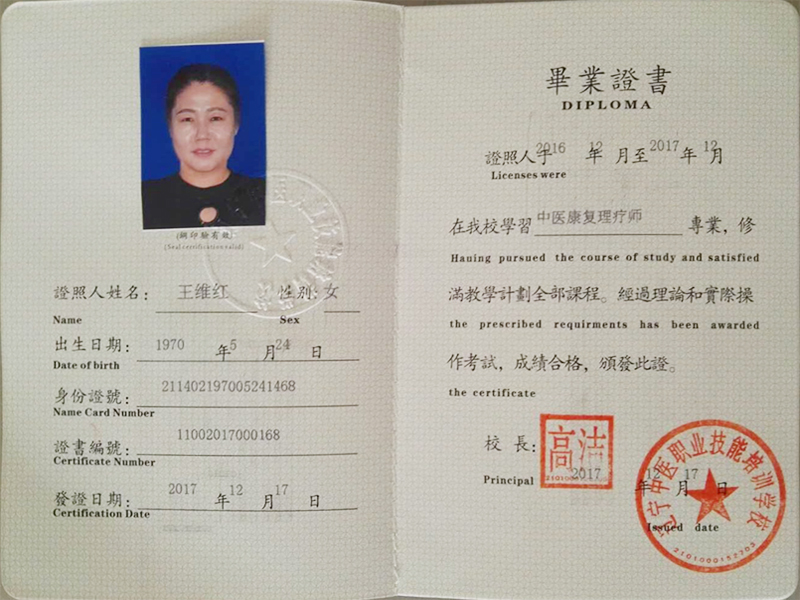 (鋼印驗有效)
(Seal certification valid)
證照人姓名: 王维红 性别: 女
Name Sex
出生日期: 1970 年 5 月 24 日
Date of birth
身份證號: 211402197005241468
Name Card Number
證書編號: 11002017000168
Certificate Number
發證日期: 2017 年 12 月 17 日
Certification Date
畢業證書
DIPLOMA
證照人于 2016 年 12 月至 2017 年 12 月
Licenses were
在我校學習 中医康复理疗师 專業，修
Hauing pursued the course of study and satisfied
滿教學計劃全部課程。經過理論和實際操
the prescribed requirments has been awarded
作考試，成績合格，頒發此證。
the certificate
校長: 高洁
Principal
2017 年 12 月 17 日
Issued date
辽宁中医职业技能培训学校
2101000152703